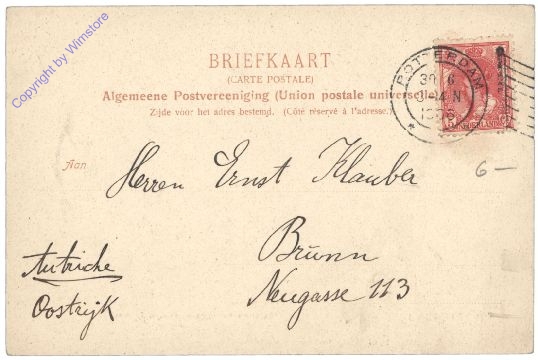 Copyright by Wimstore
BRIEFKAART
(CARTE POSTALE)
Algemeene Postvereeniging (Union postale universelle)
Zijde voor het adres bestemd. (Côté réservé à l'adresse.)
ROTTERDAM
30 6
NEDERLAND
Aan
Herren Ernst Klauber
6 —
Brünn
Neugasse 113
Autriche
Oostrijk